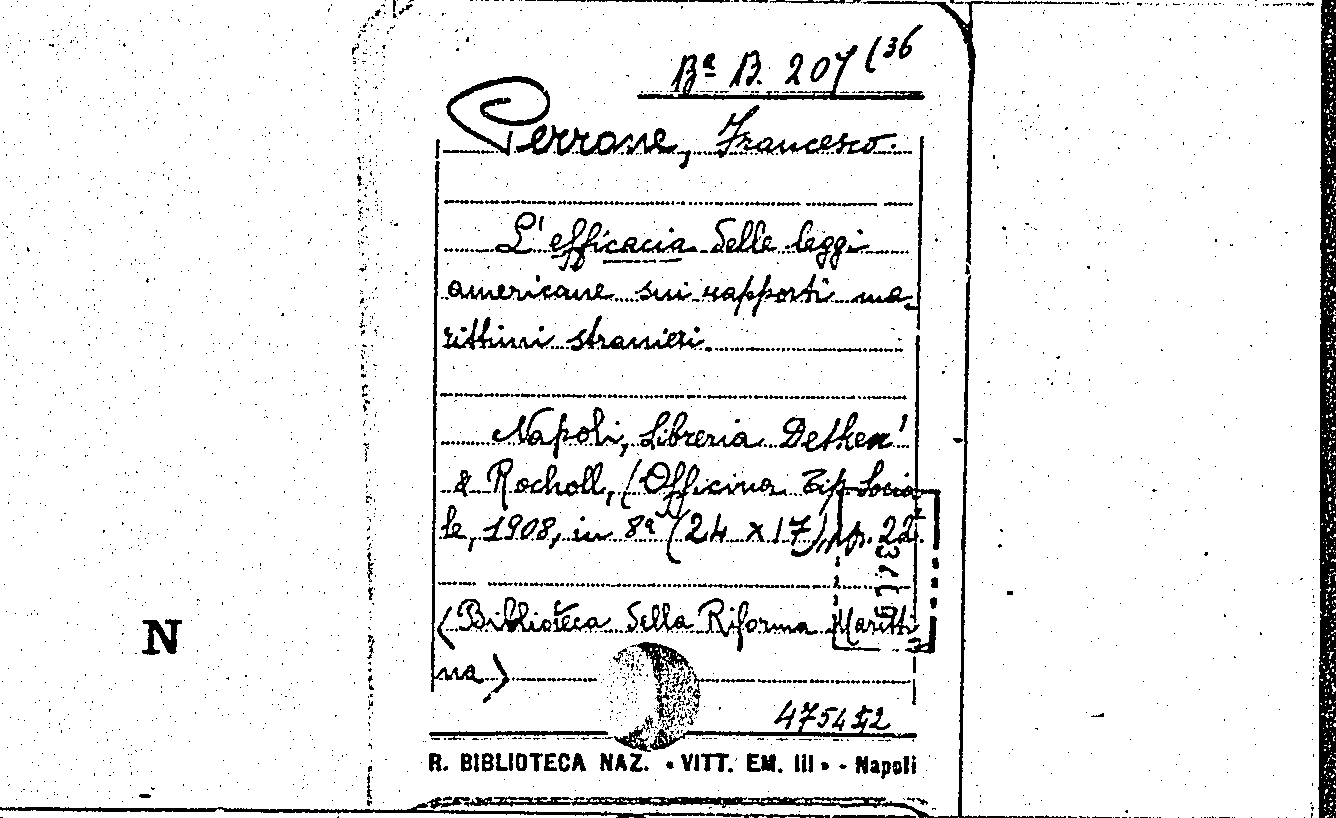 Bª B. 207 (36
Perrone, Francesco.
L'efficacia delle leggi
americane sui rapporti ma-
rittimi stranieri.
Napoli, Libreria Detken
& Rocholl, (Officina Tip. Socia
le, 1908, in 8ª (24 x 17), pp. 22.
(Biblioteca della Riforma Maritti
ma)
N
R. BIBLIOTECA NAZ. « VITT. EM. III » - Napoli